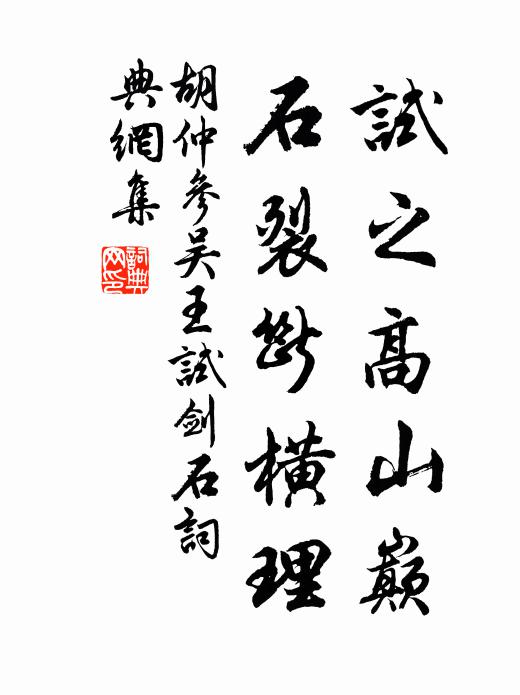 試之高山巔
石裂斷橫理
胡仲參吳王試劍石詞
典網集
詞典網印